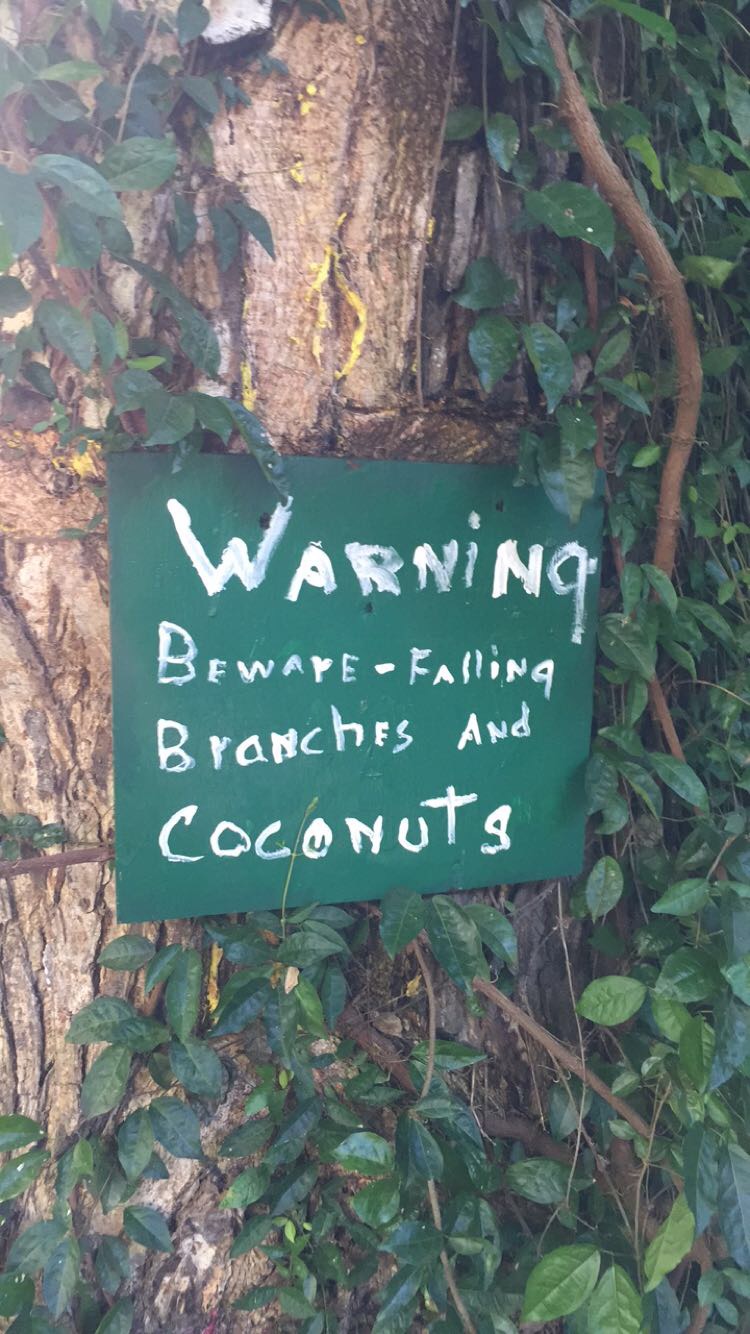 WARNiNg
BEWArE - FAlliNg
BrANchES ANd
COCONUTS